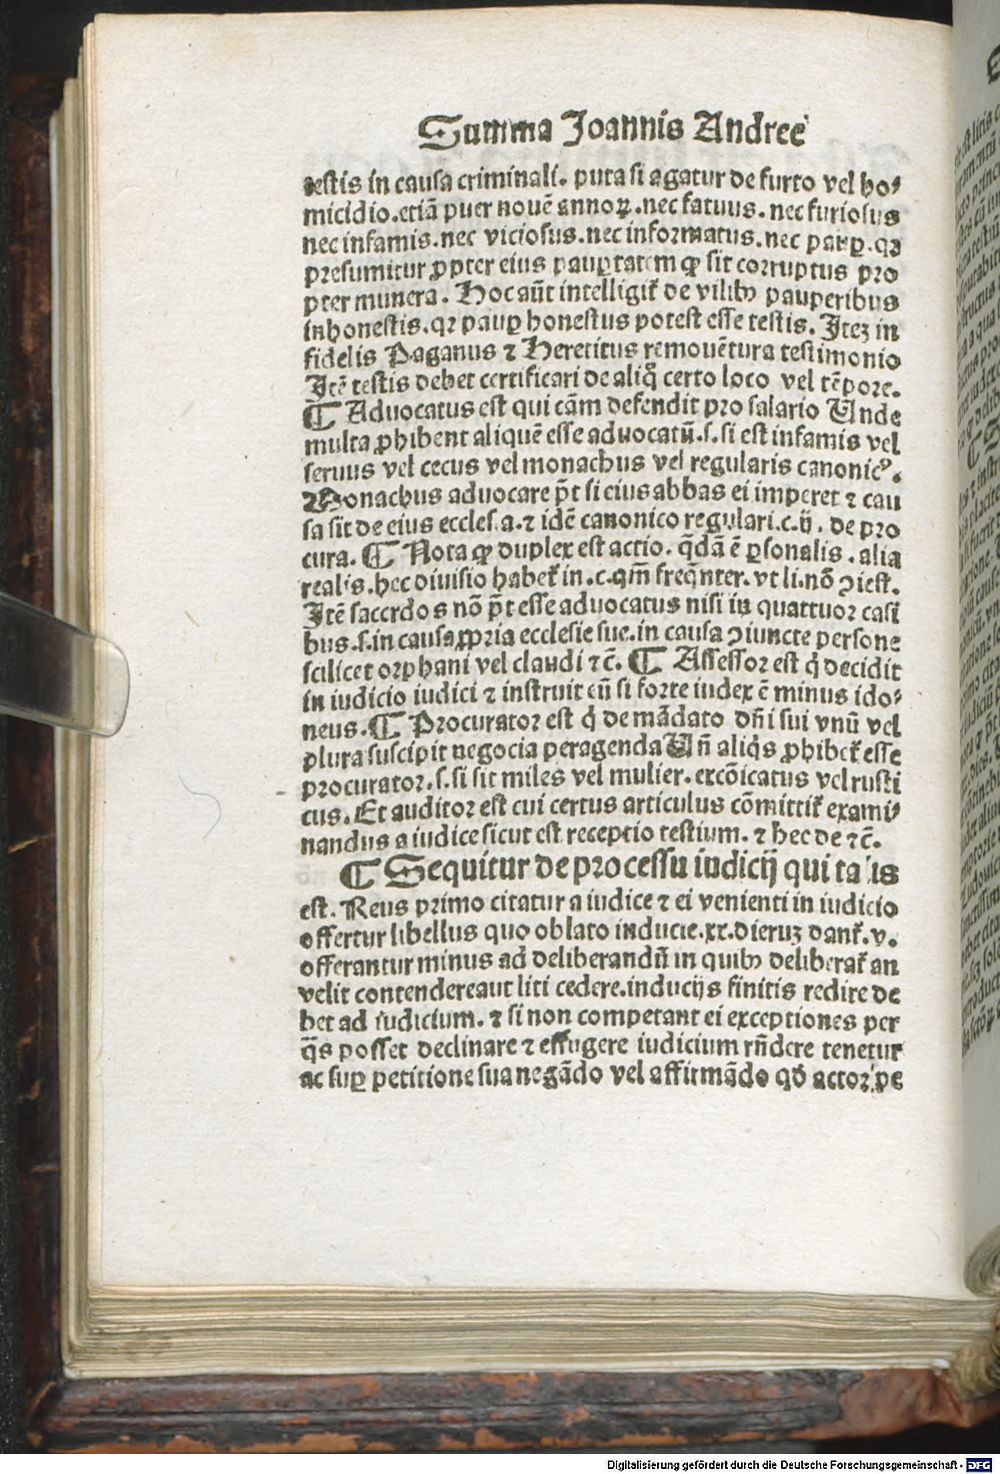 Summa Joannis Andree
testis in causa criminali. puta si agatur de furto vel ho⸗
micidio. etiã puer nouẽ annoꝝ. nec fatuus. nec furiosus
nec infamis. nec viciosus. nec informatus. nec paup̱. qꝛ
presumitur ꝓpter eius paup̱tatem ꝙ sit corruptus pro
pter munera. Hoc aũt intelligit᷑ de vilibꝰ pauperibus
inhonestis. qꝛ paup̱ honestus potest esse testis. Iteꝫ in
fidelis Paganus ⁊ Heretitus remouẽtura testimonio
Itẽ testis debet certificari de aliq̃ certo loco vel tẽpore.
¶ Aduocatus est qui cãm defendit pro salario Unde
multa ꝓhibent aliquẽ esse aduocatũ. s. si est infamis vel
seruus vel cecus vel monachus vel regularis canonicꝰ.
Monachus aduocare p̃t si eius abbas ei imperet ⁊ cau
sa sit de eius eccles.a. ⁊ idẽ canonico regulari. c. ij. de pro
cura. ¶ Nota ꝙ duplex est actio. q̃dã ẽ ꝑsonalis. alia
realis. hec diuisio habet᷑ in. c. qm̃ freq̃nter. vt li. nõ ꝯtest.
Itẽ sacerdos nõ p̃t esse aduocatus nisi in quattuor casi
bus. s. in causa ꝓpria ecclesie sue. in causa ꝯiuncte persone
scilicet orphani vel claudi ⁊c̃. ¶ Assessor est q̇ decidit
in iudicio iudici ⁊ instruit eũ si forte iudex ẽ minus ido⸗
neus. ¶ Procurator est q̇ de mãdato dñi sui vnũ vel
plura suscipit negocia peragenda Uñ aliq̇s ꝓhibet᷑ esse
procurator. s. si sit miles vel mulier. excõicatus vel rusti
cus. Et auditor est cui certus articulus cõmittit᷑ exami⸗
nandus a iudice sicut est receptio testium. ⁊ hec de ⁊c̃.
¶ Sequitur de processu iudicij qui talis
est. Reus primo citatur a iudice ⁊ ei venienti in iudicio
offertur libellus quo oblato inducie. xx. dieruꝫ dant᷑. v.
offerantur minus ad deliberandũ in quibꝰ deliberat᷑ an
velit contendereaut liti cedere. inducijs finitis redire de
bet ad iudicium. ⁊ si non competant ei exceptiones per
q̃s posset declinare ⁊ effugere iudicium rñdere tenetur
ac sup̱ petitione sua negãdo vel affirmãdo qđ actor pe
Digitalisierung gefördert durch die Deutsche Forschungsgemeinschaft - DFG